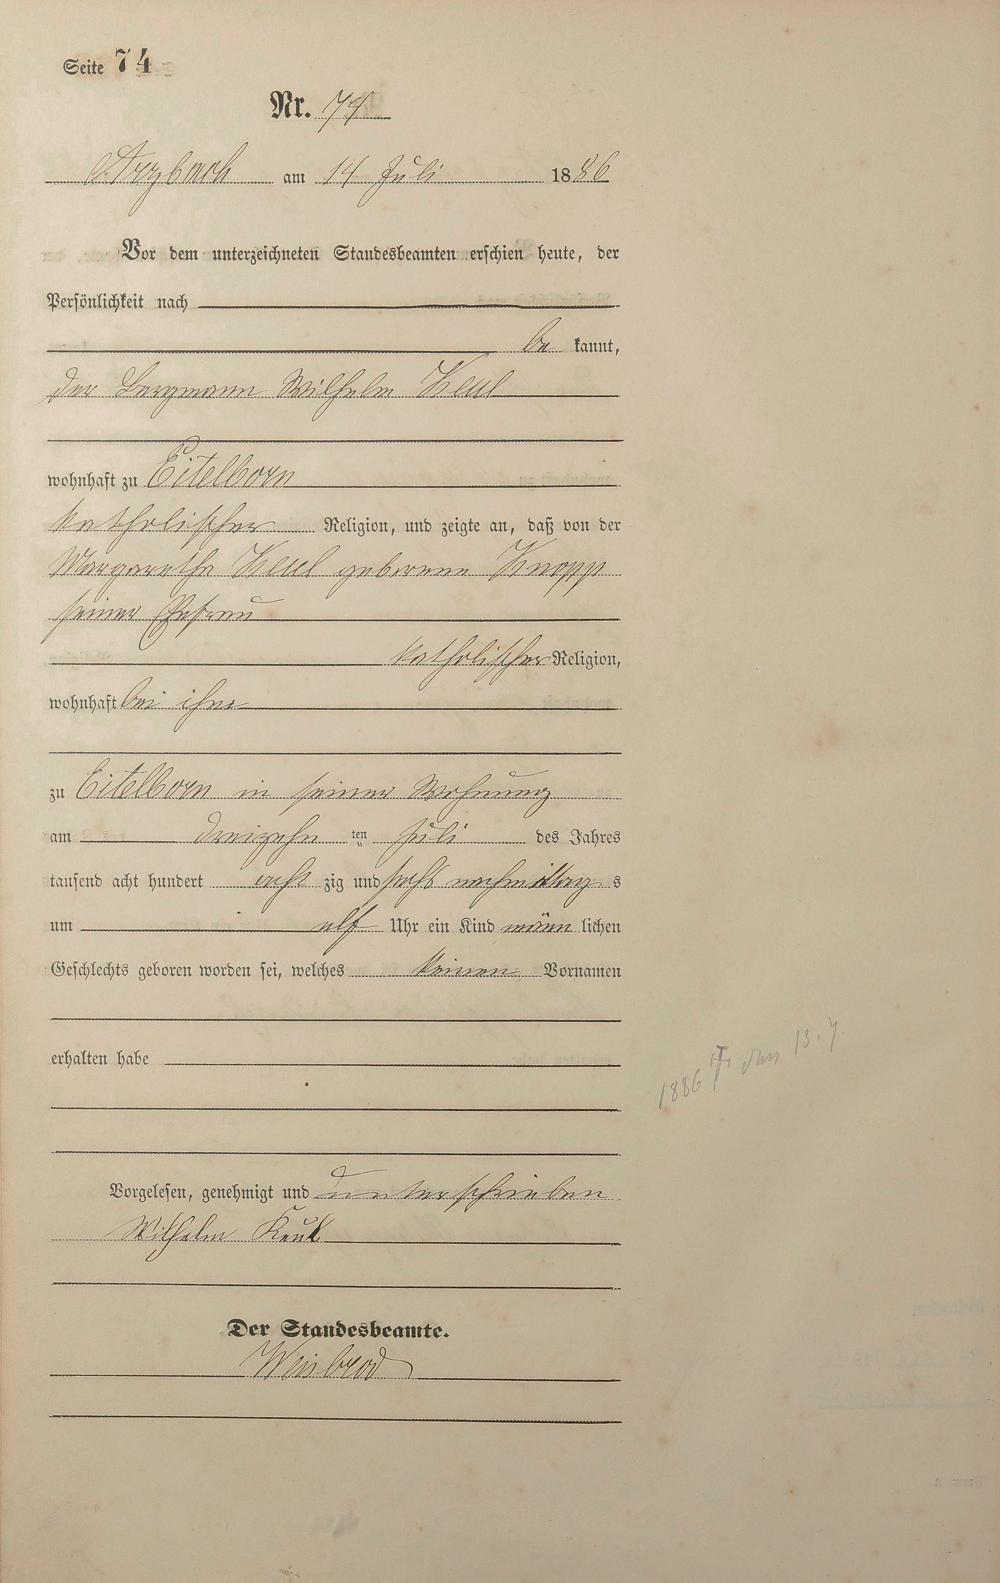 Seite 74
Nr. 74
Arzbach am 14 Juli 1886
Vor dem unterzeichneten Standesbeamten erschien heute, der
Persönlichkeit nach
be kannt,
der Bergmann Wilhelm Keul
wohnhaft zu Eitelborn
katholischer Religion, und zeigte an, daß von der
Margarethe Keul geborene Knopp
seiner Ehefrau
katholischer Religion,
wohnhaft bei ihm
zu Eitelborn in seiner Wohnung
am dreizehn ten Juli des Jahres
tausend acht hundert acht zig und sechs nachmittag s
um elf Uhr ein Kind männ lichen
Geschlechts geboren worden sei, welches keinen Vornamen
erhalten habe
1886 † den 13.7.
Vorgelesen, genehmigt und unterschrieben
Wilhelm Keul
Der Standesbeamte.
Weisbrod